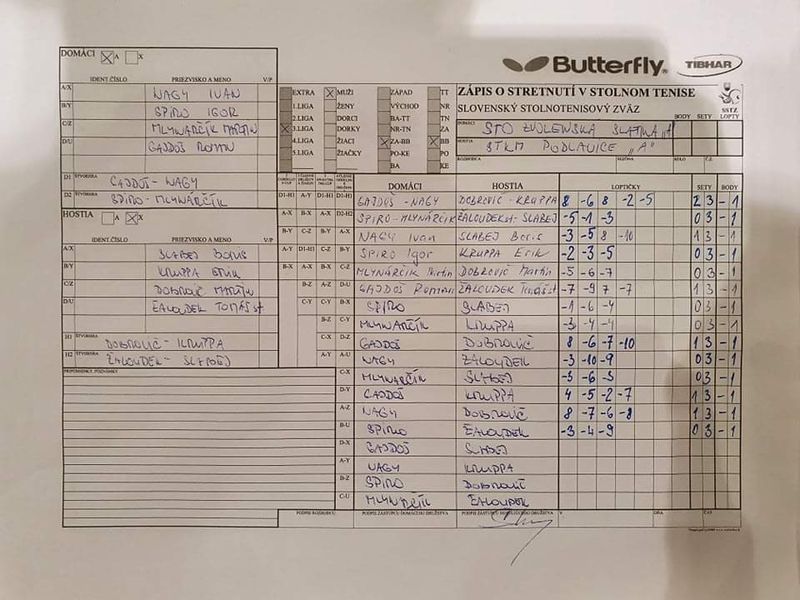 DOMÁCI A X
IDENT.ČÍSLO PRIEZVISKO A MENO V/P
A/X NAGY IVAN
B/Y SPIRO IGOR
C/Z MLYNÁRČIK MARTIN
D/U GAJDOŠ ROMAN
D1 ŠTVORHRA GAJDOŠ - NAGY
D2 ŠTVORHRA SPIRO - MLYNÁRČIK
HOSTIA A X
IDENT.ČÍSLO PRIEZVISKO A MENO V/P
A/X SLABEJ BORIS
B/Y KRUPPA ERIK
C/Z DOBROVIČ MARTIN
D/U ŽALOUDEK TOMÁŠ st
H1 ŠTVORHRA DOBROVIČ - KRUPPA
H2 ŠTVORHRA ŽALOUDEK - SLABEJ
PRIPOMIENKY, POZNÁMKY
Butterfly TIBHAR
EXTRA MUŽI ZÁPAD TT
1.LIGA ŽENY VÝCHOD NR
2.LIGA DORCI BA-TT TN
3.LIGA DORKY NR-TN ZA
4.LIGA ŽIACI ZA-BB BB
5.LIGA ŽIAČKY PO-KE PO
BA KE
ZÁPIS O STRETNUTÍ V STOLNOM TENISE
SLOVENSKÝ STOLNOTENISOVÝ ZVÄZ
SSTZ
BODY SETY LOPTY
DOMÁCI STO ZVOLENSKÁ SLATINA "A"
HOSTIA STKM PODLAVICE "A"
ROZHODCA SEZÓNA KOLO Č.Z.
DOMÁCI HOSTIA LOPTIČKY SETY BODY
D1-H1 A-Y D1-H1 D1-H1 GAJDOŠ - NAGY DOBROVIČ - KRUPPA 8 -6 8 -2 -5 2 3 - 1
A-X B-X A-X D2-H2 SPIRO - MLYNÁRČIK ŽALOUDEK st - SLABEJ -5 -1 -3 0 3 - 1
B-Y C-Z B-Y A-X NAGY Ivan SLABEJ Boris -3 -5 8 -10 1 3 - 1
A-Y D1-H1 C-Z B-Y SPIRO Igor KRUPPA Erik -2 -3 -5 0 3 - 1
B-X A-X B-X C-Z MLYNÁRČIK Martin DOBROVIČ Martin -5 -6 -7 0 3 - 1
B-Z A-Z D-U GAJDOŠ Roman ŽALOUDEK Tomáš st -7 -9 7 -7 1 3 - 1
C-Y C-Y B-X SPIRO SLABEJ -1 -6 -4 0 3 - 1
B-Z C-Y MLYNARČIK KRUPPA -3 -4 -4 0 3 - 1
C-X D-Z GAJDOŠ DOBROVIČ 8 -6 -7 -10 1 3 - 1
A-Y A-U NAGY ŽALOUDEK -3 -10 -9 0 3 - 1
C-X MLYNARČIK SLABEJ -6 0 3 - 1
D-Y GAJDOŠ KRUPPA 4 -5 -2 -7 1 3 - 1
A-Z NAGY DOBROVIČ 8 -7 -6 -8 1 3 - 1
B-U SPIRO ŽALOUDEK -3 -4 -9 0 3 - 1
D-X GAJDOŠ SLABEJ
A-Y NAGY KRUPPA
B-Z SPIRO DOBROVIČ
C-U MLYNARČIK ŽALOUDEK
PODPIS ROZHODCU PODPIS ZÁSTUPCU DOMÁCEHO DRUŽSTVA PODPIS ZÁSTUPCU HOSŤUJÚCEHO DRUŽSTVA V DŇA ČAS